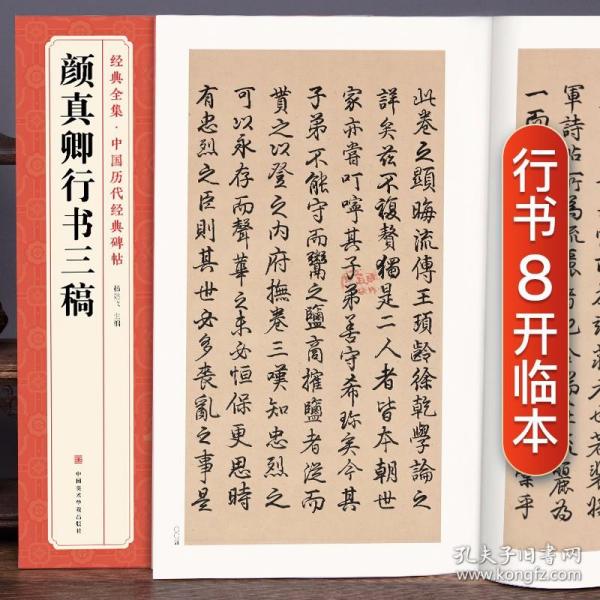 经典全集·中国历代经典碑帖
颜真卿行书三稿
主编
中国美术学院出版社
此卷之顯晦流傳王頊齡徐乾學論之
詳矣茲不複贅獨是二人者皆本朝世
家亦嘗叮嚀其子弟善守希珍矣今其
子弟不能守而鬻之鹽商擢鹽者從而
貰之以登之內府撫卷三嘆知忠烈之
可以永存而聲華之未必恒保更思時
有忠烈之臣則其世必多喪亂之事是
軍詩帖所為流
一而
乎
行书8开临本
孔夫子旧书网
www.kongfz.com